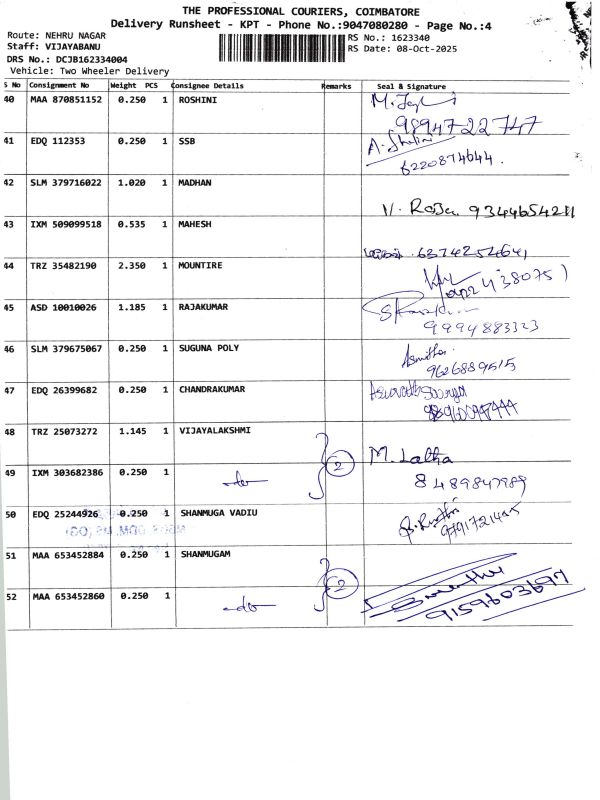 THE PROFESSIONAL COURIERS, COIMBATORE
Delivery Runsheet - KPT - Phone No.:9047080280 - Page No.:4
Route: NEHRU NAGAR
Staff: VIJAYABANU
DRS No.: DCJB162334004
Vehicle: Two Wheeler Delivery
RS No.: 1623340
RS Date: 08-Oct-2025
S No Consignment No Weight PCS Consignee Details Remarks Seal & Signature
40 MAA 870851152 0.250 1 ROSHINI
9894722747
41 EDQ 112353 0.250 1 SSB A. Shalini
6220874644.
42 SLM 379716022 1.020 1 MADHAN
V. Roja. 9344654211
43 IXM 509099518 0.535 1 MAHESH
6374252641
44 TRZ 35482190 2.350 1 MOUNTIRE
45 ASD 10010026 1.185 1 RAJAKUMAR
9994883323
46 SLM 379675067 0.250 1 SUGUNA POLY
9626889515
47 EDQ 26399682 0.250 1 CHANDRAKUMAR
48 TRZ 25073272 1.145 1 VIJAYALAKSHMI 2 M. Latha
49 IXM 303682386 0.250 1 -do- 8489847989
50 EDQ 25244926 0.250 1 SHANMUGA VADIU
9791721495
51 MAA 653452884 0.250 1 SHANMUGAM 2
52 MAA 653452860 0.250 1 -do- 9159603697